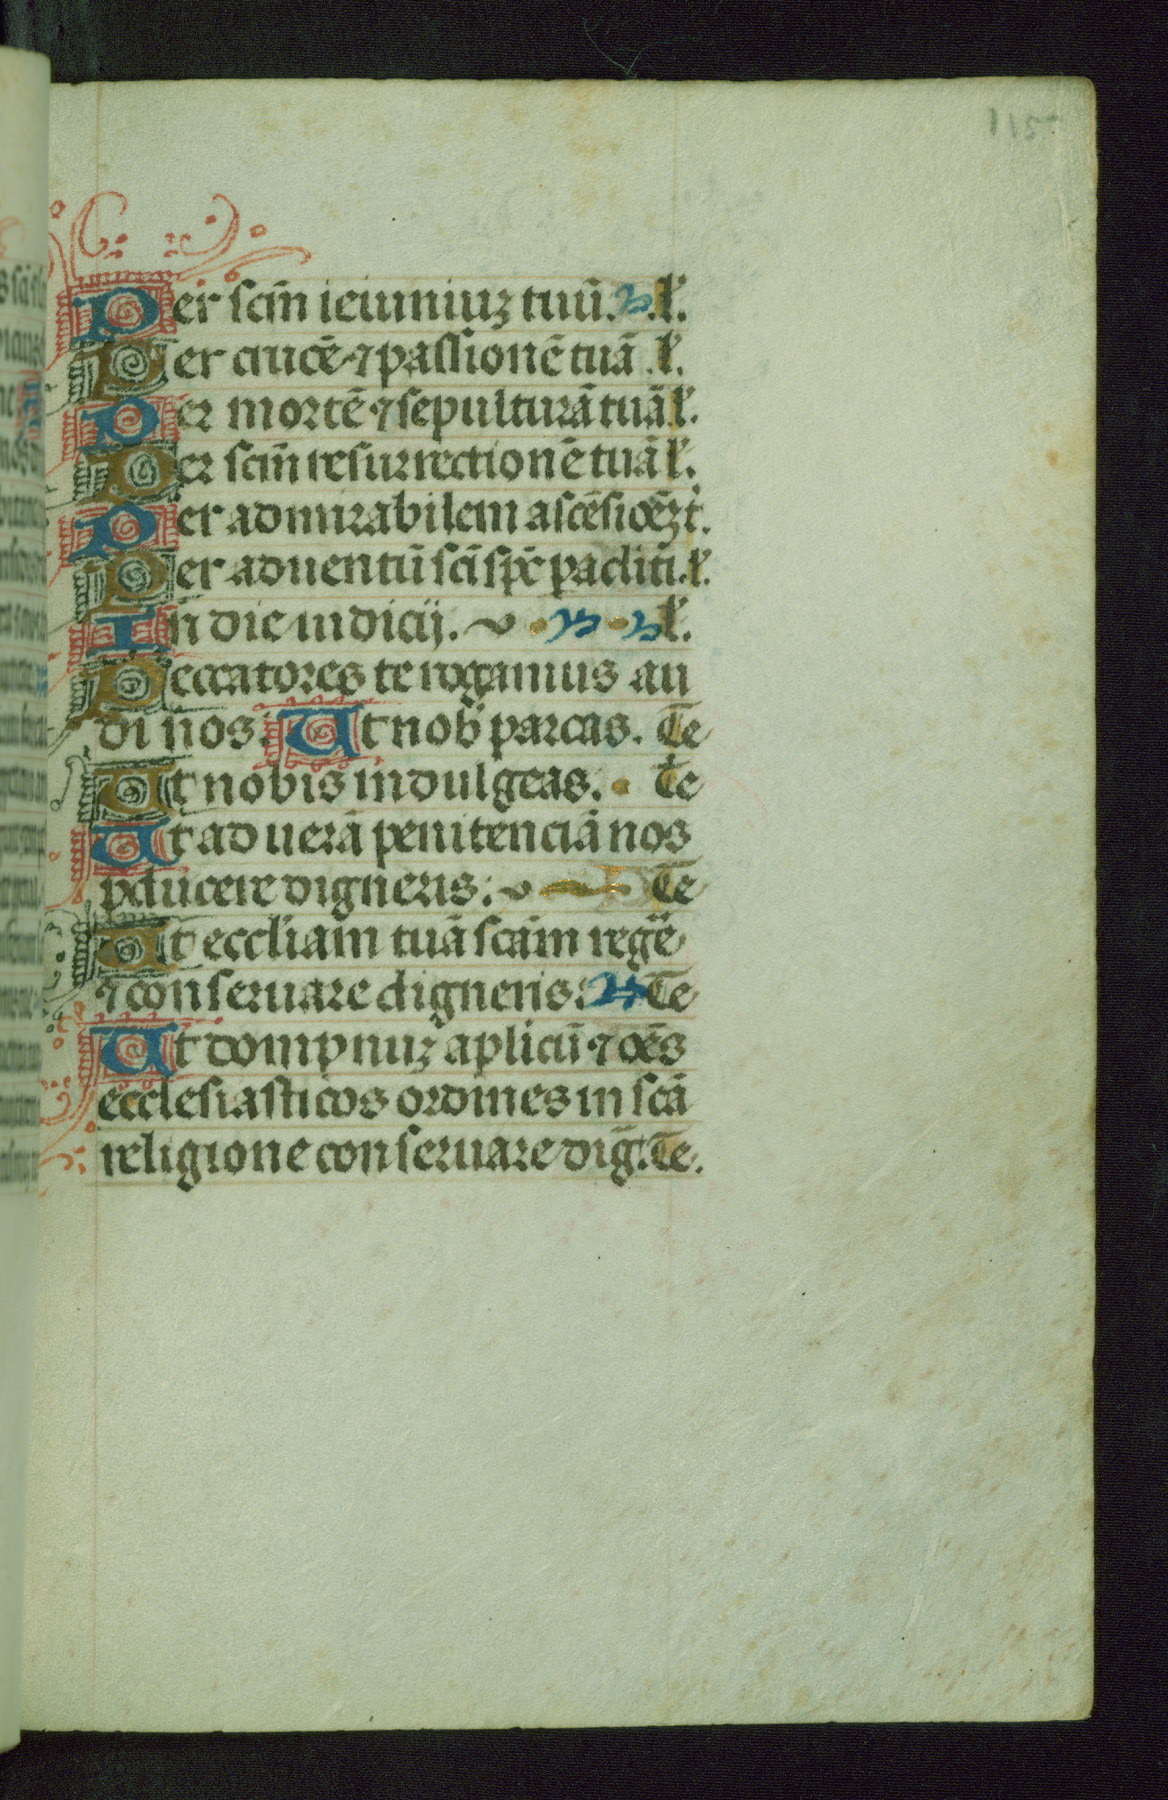 115
Per scm̄ ieiuniuʒ tuū. l'.
Per crucē ⁊ passionē tuā .l'.
Per mortē ⁊ sepulturā tuā l'.
Per scm̄ resurrectionē tuā l'.
Per admirabilem ascēsioēʒ t'.
Per aduentū sc̄i sp̄c pacliti. l'.
In die iudicij. l'.
Peccatores te rogamus au
di nos. Ut nob' parcas. Te
Ut nobis indulgeas. Te
Ut ad uerā penitenciā nos
pducere digneris. Te
Ut eccliam tuā scām regē
⁊ conseruare digneris. Te
Ut dompnuʒ aplicū ⁊ oēs
ecclesiasticos ordines in scā
religione conseruare diḡ. Te.